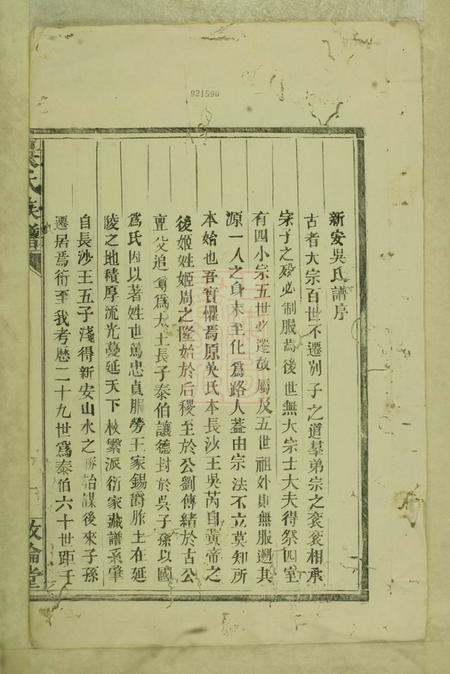 921590
新安吳氏譜序
古者大宗百世不遷別子之道羣弟宗之衮衮相承
宗子之殁必制服焉後世無大宗士大夫得祭四室
有四小宗五世必遷故屬及五世祖外則無服遡其
源一人之身末至化爲路人蓋由宗法不立莫知所
本始也吾實懼焉原吳氏本長沙王吳芮自黃帝之
後姬姓姬周之隆始於后稷至於公劉傳緒於古公
亶父追爲太王長子泰伯讓德封於吳子孫以國
爲氏因以著姓也篤忠貞服勞王家錫爵胙土在延
陵之地積厚流光蔓延天下枝繁派衍家藏譜系肇
自長沙王五子淺得新安山水之勝詒謀後來子孫
遷居焉衍至我考歷二十九世爲泰伯六十世距于
吳氏族譜
敘倫堂